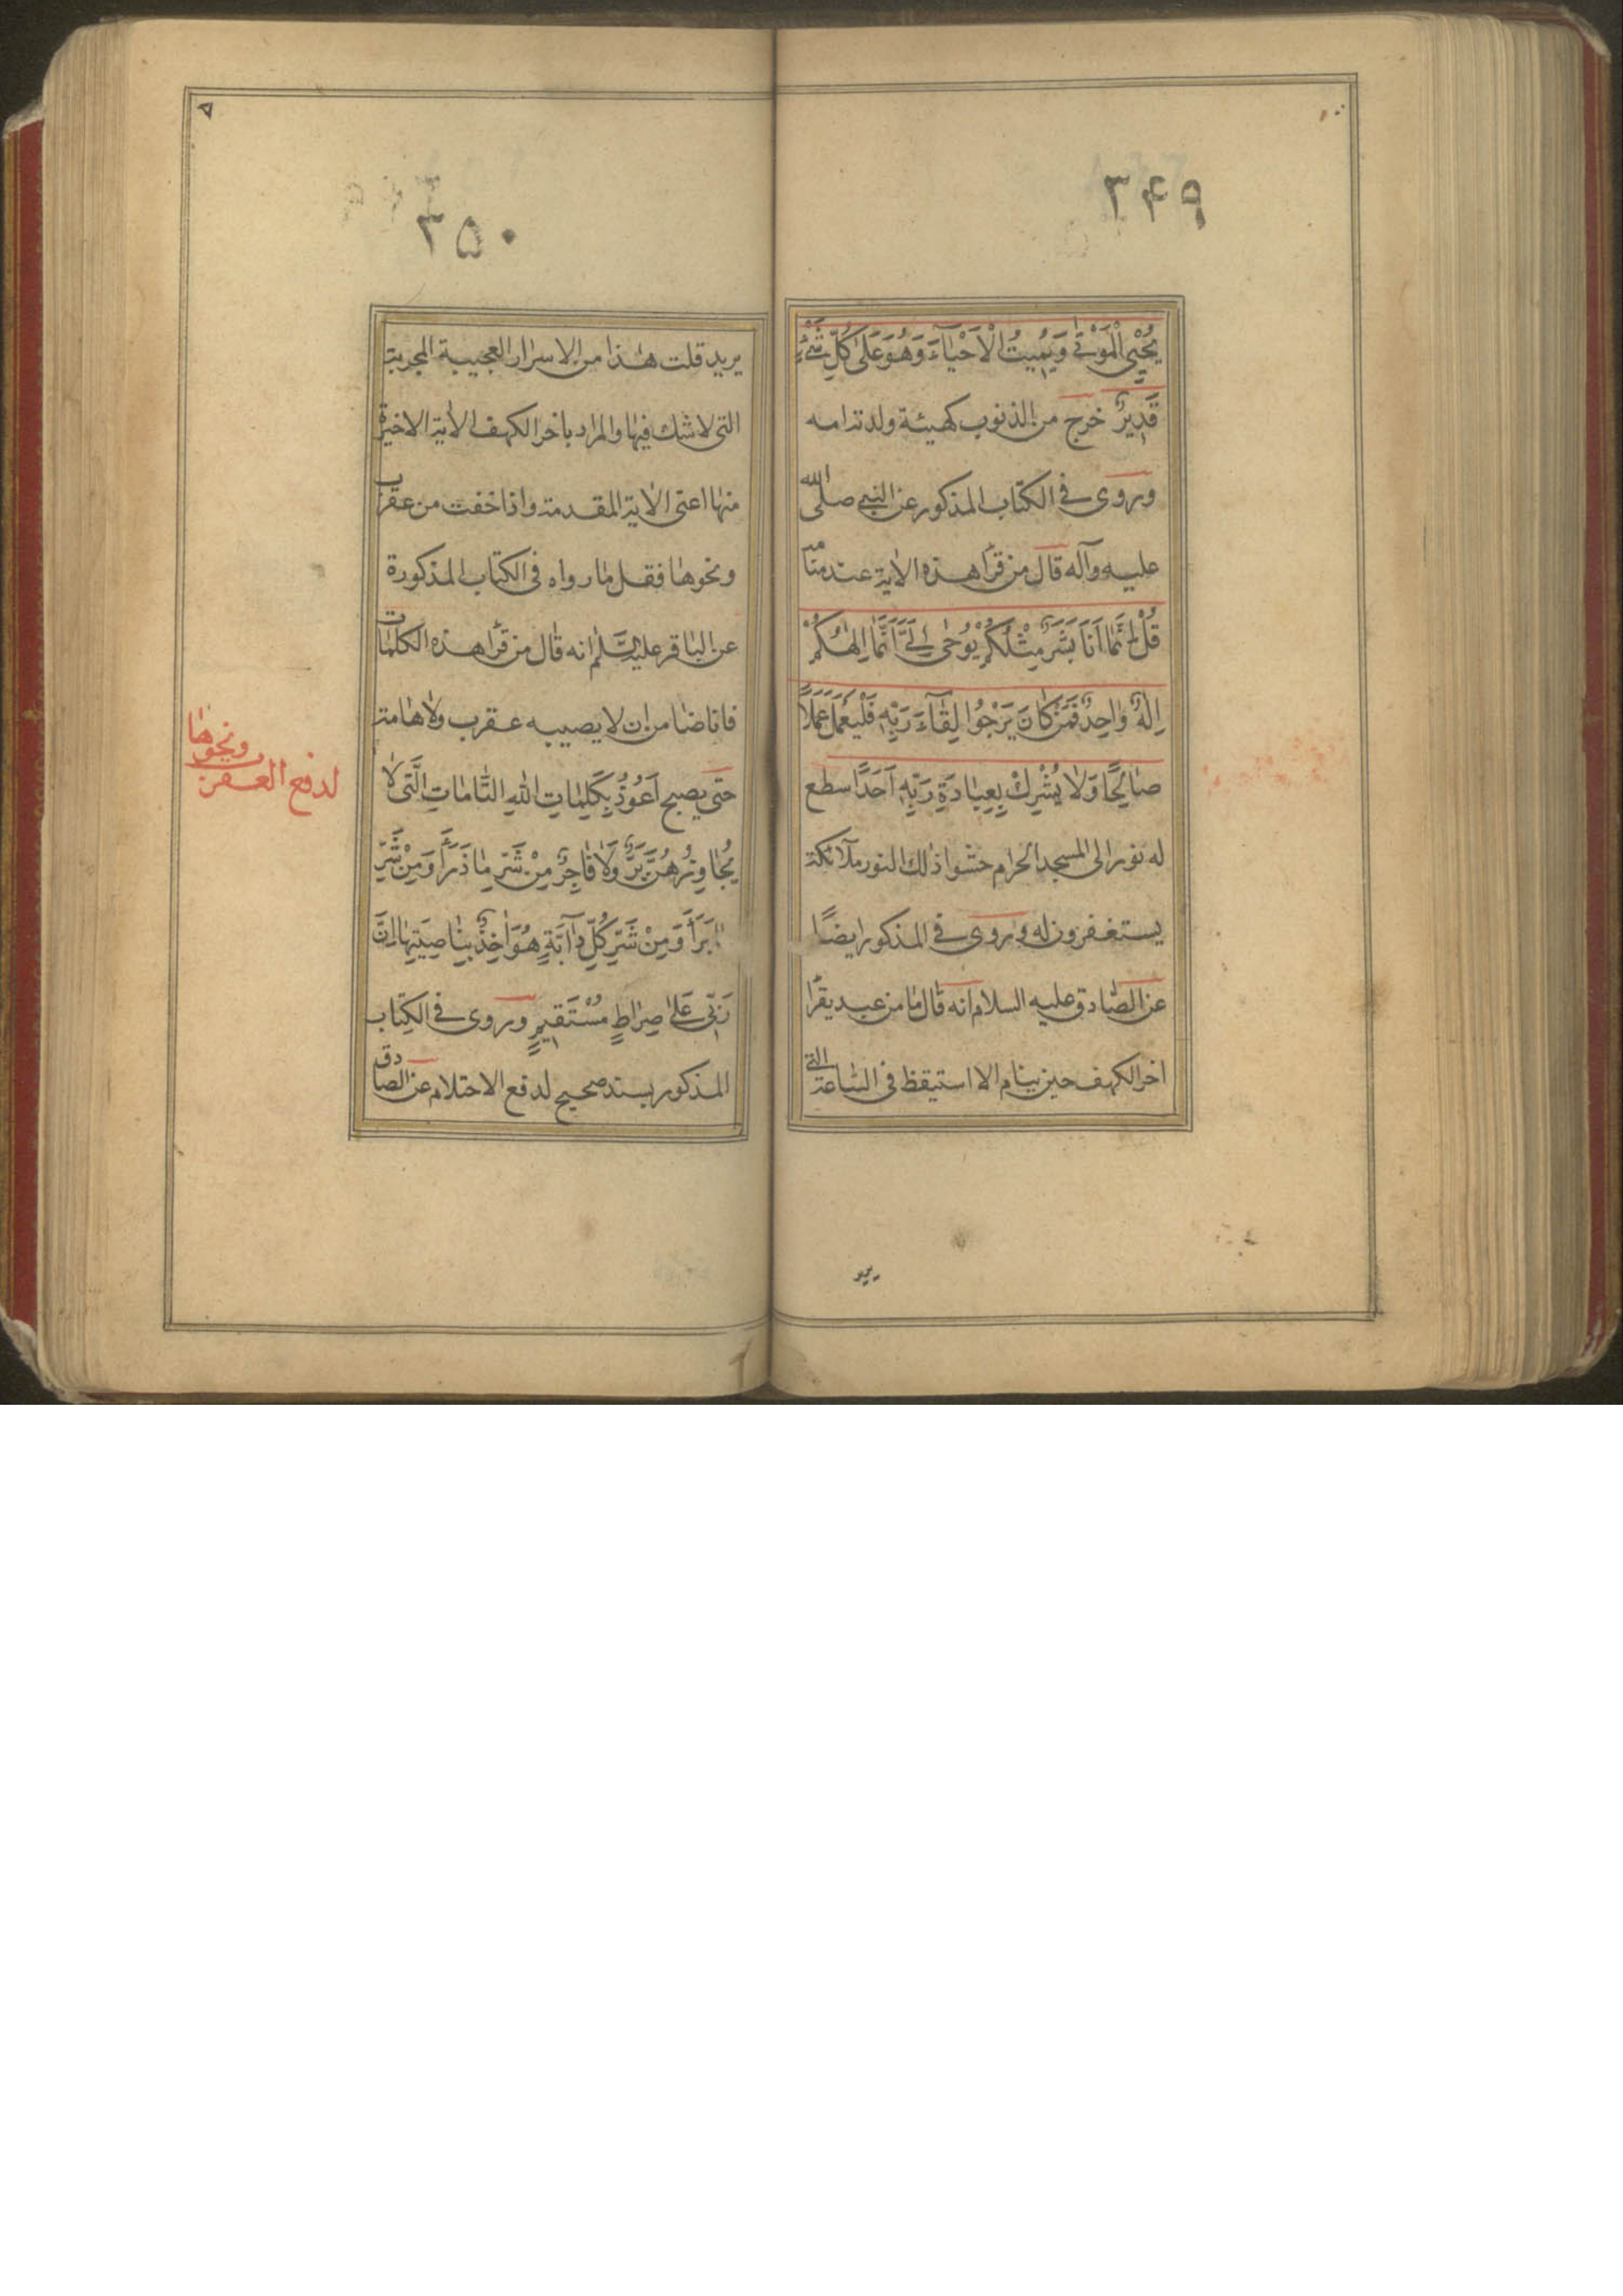 ۳۴۹
يُحْيِي الْمَوْتٰى وَيُمِيتُ الْاَحْيٰاءَ وَهُوَ عَلٰى كُلِّ شَيْءٍ
قَدِيرٌ خرج من الذنوب كهيئة ولدته امه
وروى فى الكتاب المذكور عن النبى صلى الله
عليه وآله قال من قرأ هذه الاية عند منامه
قُلْ اِنَّمٰا اَنَا بَشَرٌ مِثْلُكُمْ يُوحٰى اِلَىَّ اَنَّمٰا اِلٰهُكُمْ
اِلٰهٌ وٰاحِدٌ فَمَنْ كٰانَ يَرْجُوا لِقٰاءَ رَبِّهِ فَلْيَعْمَلْ عَمَلًا
صٰالِحًا وَلٰا يُشْرِكْ بِعِبٰادَةِ رَبِّهِ اَحَدًا سطع
له نور الى المسجد الحرام حشو ذلك النور ملائكة
يستغفرون له وروى فى المذكور ايضًا
عن الصّادق عليه السلام انه قال ما من عبد يقرأ
اخر الكهف حين ينام الا استيقظ فى الساعة التى
يريد
۳۵۰
يريد قلت هذا من الاسرار العجيبة المجربة
التى لا شك فيها والمراد باخر الكهف الاية الاخيرة
منها اعنى الاية المقدمة واذا خفت من عقرب
ونحوها فقل ما رواه فى الكتاب المذكورة
عن الباقر عليه السلم انه قال من قرأ هذه الكلمات
فانا ضامن ان لا يصيبه عقرب ولا هامة
حتى يصبح اَعُوذُ بِكَلِمٰاتِ اللهِ التّٰامٰاتِ الَّتى لٰا
يُجٰاوِزُهُنَّ بَرٌّ وَلٰا فٰاجِرٌ مِنْ شَرِّ مٰا ذَرَأَ وَمِنْ شَرِّ
مٰا بَرَأَ وَمِنْ شَرِّ كُلِّ دٰابَّةٍ هُوَ اٰخِذٌ بِنٰاصِيَتِهٰا اِنَّ
رَبِّى عَلٰى صِرٰاطٍ مُسْتَقِيمٍ وروى فى الكتاب
المذكور بسند صحيح لدفع الاحتلام عن الصادق
لدفع العقرب
ونحوها